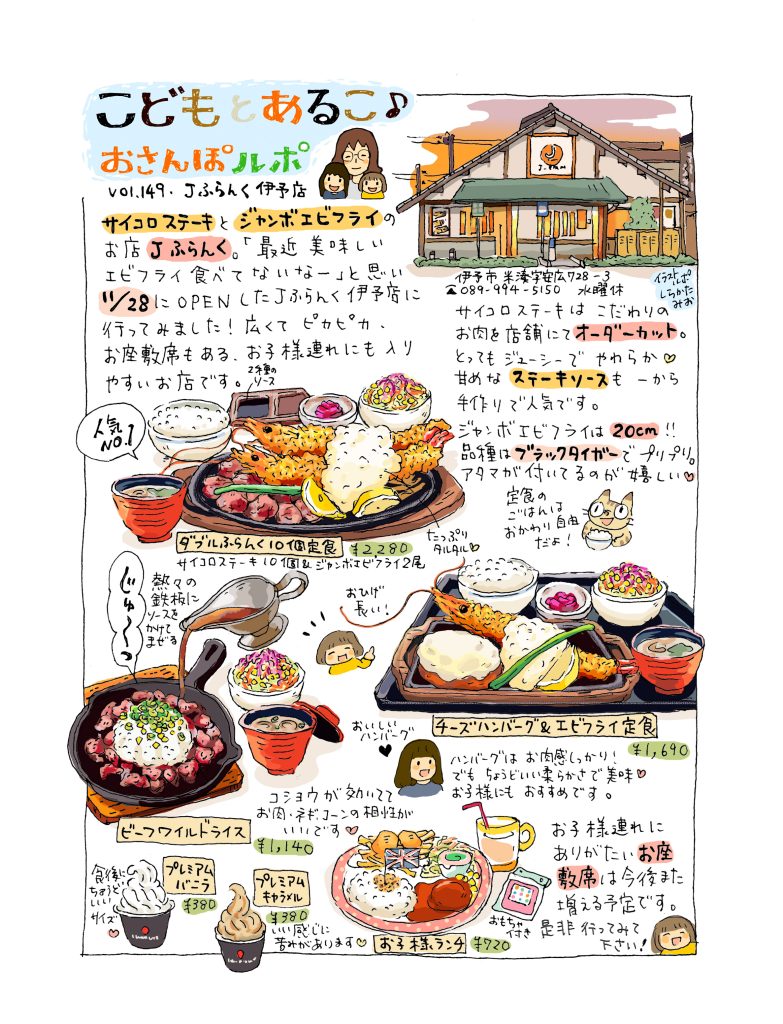 こどもとあるこ♪
おさんぽルポ
vol.149. Jふらんく伊予店
J.FRAN
サイコロステーキとジャンボエビフライの
お店Jふらんく。「最近 美味しい
エビフライ食べてないなー」と思い
11/28にOPENしたJふらんく伊予店に
行ってみました！広くてピカピカ、
お座敷席もある、お子様連れにも入り
やすいお店です。
伊予市米湊字安広728-3
☎089-994-5150 水曜休
イラストルポ
しちかた
みお
サイコロステーキは こだわりの
お肉を店舗にてオーダーカット。
とってもジューシーで やわらか♡
甘めなステーキソースも 一から
手作りで人気です。
ジャンボエビフライは20cm!!
品種はブラックタイガーでプリプリ。
アタマが付いてるのが嬉しい♥
2種の
ソース
人気
NO.1
たっぷり
タルタル♡
ダブルふらんく10個定食 ¥2,280
サイコロステーキ10個&ジャンボエビフライ2尾
定食の
ごはんは
おかわり自由
だよ！
じゅ〜っ
熱々の
鉄板に
ソースを
かけて
まぜる
おひげ
長い！
チーズハンバーグ&エビフライ定食
¥1,690
おいしい
ハンバーグ
♥
ハンバーグは お肉感しっかり！
でも ちょうどいい柔らかさで美味♥
お子様にも おすすめです。
コショウが効いてて
お肉・ネギ・コーンの相性が
いいです♥
ビーフワイルドライス
¥1,140
食後に
ちょうど
いい
サイズ
♡
プレミアム
バニラ
¥380
プレミアム
キャラメル
¥380
いい感じに
苦みがあります♡
おもちゃ
付き
お子様ランチ ¥720
お子様連れに
ありがたいお座
敷席は今後また
増える予定です。
是非行ってみて
下さい！